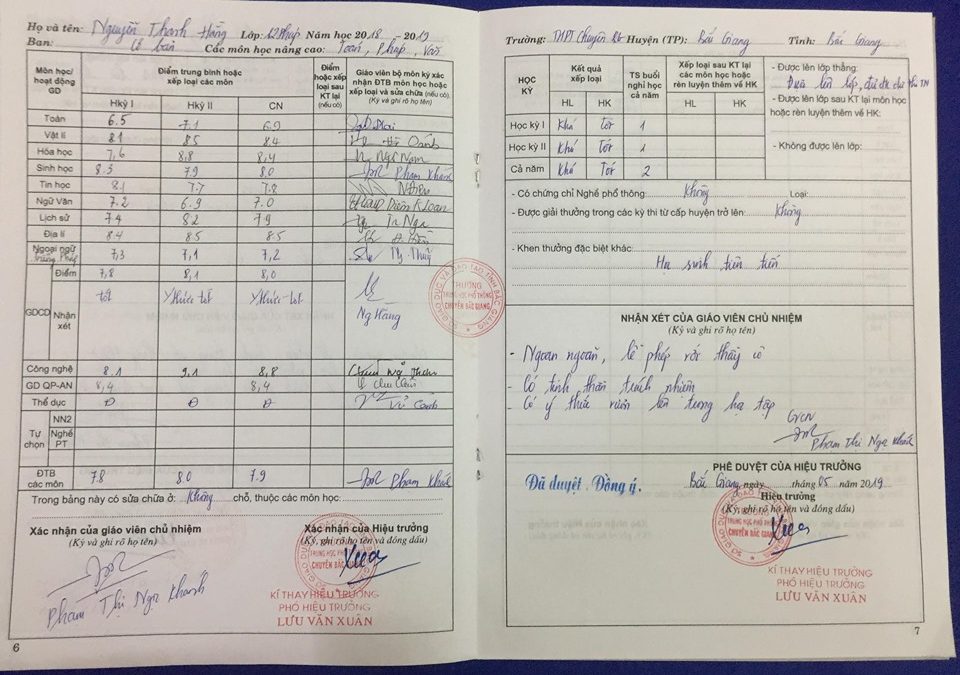 Họ và tên: Nguyễn Thanh Hằng Lớp: 12 Pháp Năm học 2018 - 2019
Ban: Cơ bản Các môn học nâng cao: Toán, Pháp, Văn
Môn học/ hoạt động GD
Điểm trung bình hoặc xếp loại các môn
Điểm hoặc xếp loại sau KT lại (nếu có)
Giáo viên bộ môn ký xác nhận ĐTB môn học hoặc xếp loại và sửa chữa (nếu có).
(Ký và ghi rõ họ tên)
HKỳ I HKỳ II CN
Toán 6.5 7.1 6.9
Vật lí 8.1 8.5 8.4
Hóa học 7,6 8,8 8,4
Sinh học 8.3 7.9 8.0 Phạm Khánh
Tin học 8.1 7.7 7.8
Ngữ Văn 7.2 6.9 7.0
Lịch sử 7.4 8.2 7.9 Nga
Địa lí 8.4 8.5 8.5
Ngoại ngữ Tiếng Pháp 7,3 7,1 7,2 Thủy
GDCD
Điểm 7,8 8,1 8,0
Nhận xét tốt Ý thức tốt Ý thức tốt
Ng Hằng
Công nghệ 8.1 9,1 8,8
GD QP-AN 8,4 8,4
Thể dục Đ Đ Đ
Tự chọn
NN2
Nghề PT
ĐTB các môn 7.8 8.0 7.9 Phạm Khánh
Trong bảng này có sửa chữa ở: Không chỗ, thuộc các môn học:
Xác nhận của giáo viên chủ nhiệm
(Ký và ghi rõ họ tên)
Phạm Thị Ngọc Khánh
Xác nhận của Hiệu trưởng
(Ký, ghi rõ họ tên và đóng dấu)
KÍ THAY HIỆU TRƯỞNG
PHÓ HIỆU TRƯỞNG
LƯU VĂN XUÂN
6
SỞ GIÁO DỤC VÀ ĐÀO TẠO TỈNH BẮC GIANG
TRƯỜNG
TRUNG HỌC PHỔ THÔNG
CHUYÊN BẮC GIANG
Trường: THPT Chuyên BG Huyện (TP): Bắc Giang Tỉnh: Bắc Giang
HỌC KỲ
Kết quả xếp loại
TS buổi nghỉ học cả năm
Xếp loại sau KT lại các môn học hoặc rèn luyện thêm về HK
HL HK HL HK
Học kỳ I Khá Tốt 1
Học kỳ II Khá Tốt 1
Cả năm Khá Tốt 2
- Được lên lớp thẳng:
Được lên lớp, đủ đk dự thi TN
- Được lên lớp sau KT lại môn học hoặc rèn luyện thêm về HK:
- Không được lên lớp:
- Có chứng chỉ Nghề phổ thông: Không Loại:
- Được giải thưởng trong các kỳ thi từ cấp huyện trở lên: Không
- Khen thưởng đặc biệt khác:
Học sinh tiên tiến
NHẬN XÉT CỦA GIÁO VIÊN CHỦ NHIỆM
(Ký và ghi rõ họ tên)
- Ngoan ngoãn, lễ phép với thầy cô
- Có tinh thần trách nhiệm
- Có ý thức vươn lên trong học tập
GVCN
Phạm Thị Ngọc Khánh
PHÊ DUYỆT CỦA HIỆU TRƯỞNG
Đã duyệt, Đồng ý.
Bắc Giang ngày tháng 05 năm 2019
Hiệu trưởng
(Ký, ghi rõ họ tên và đóng dấu)
TRUNG HỌC PHỔ THÔNG
CHUYÊN BẮC GIANG
KÍ THAY HIỆU TRƯỞNG
PHÓ HIỆU TRƯỞNG
LƯU VĂN XUÂN
7